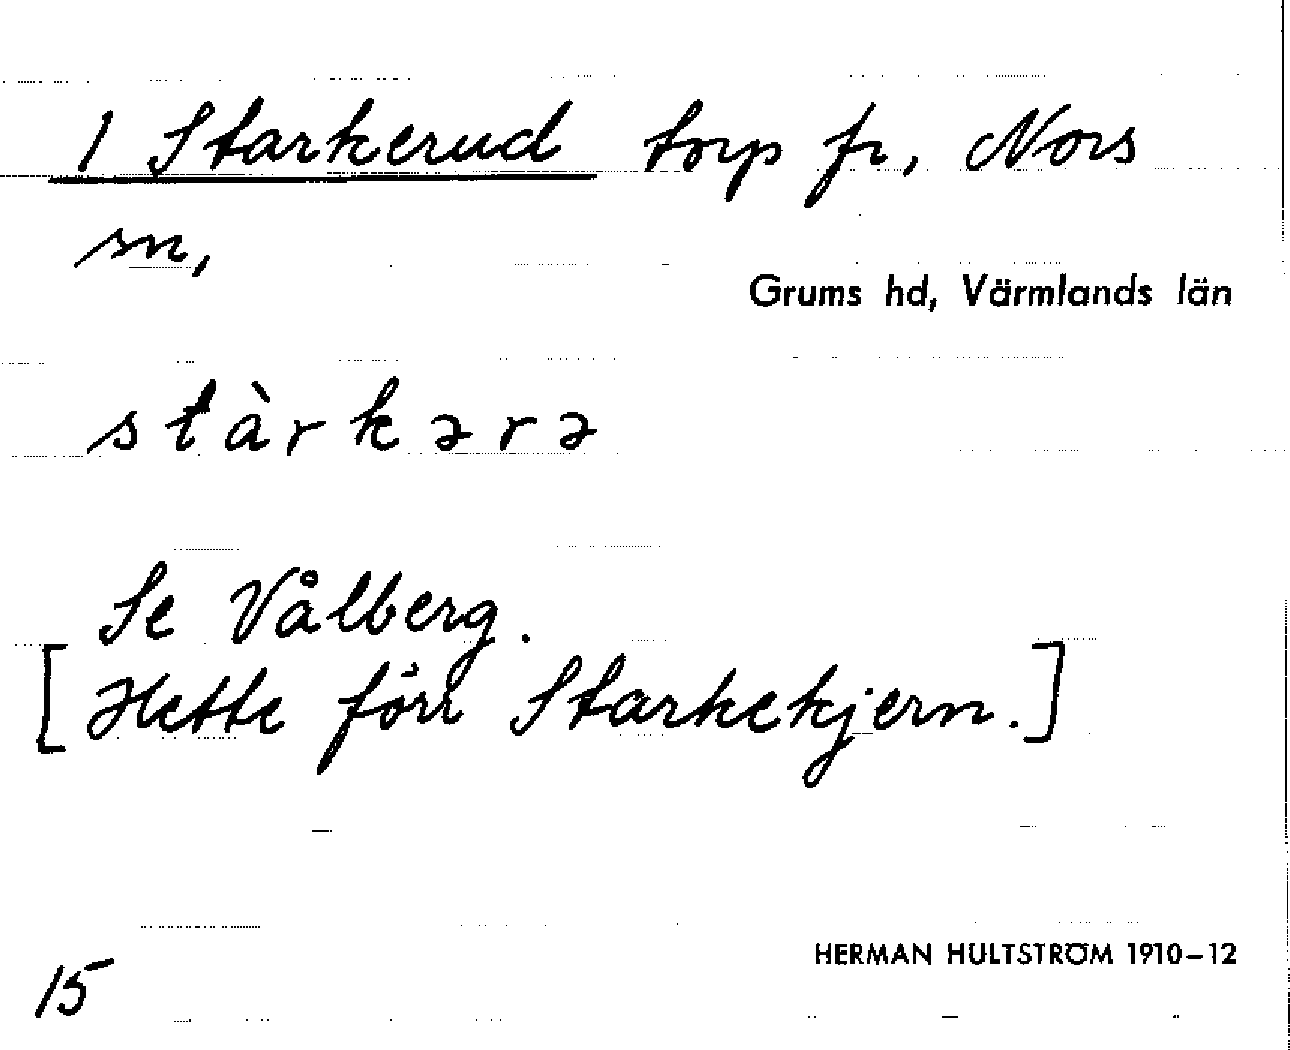 1 Starkerud torp fr, Nors
sn,
Grums hd, Värmlands län
stàrkərə
Se Vålberg.
[Hette förr Starkekjern.]
HERMAN HULTSTRÖM 1910–12
15